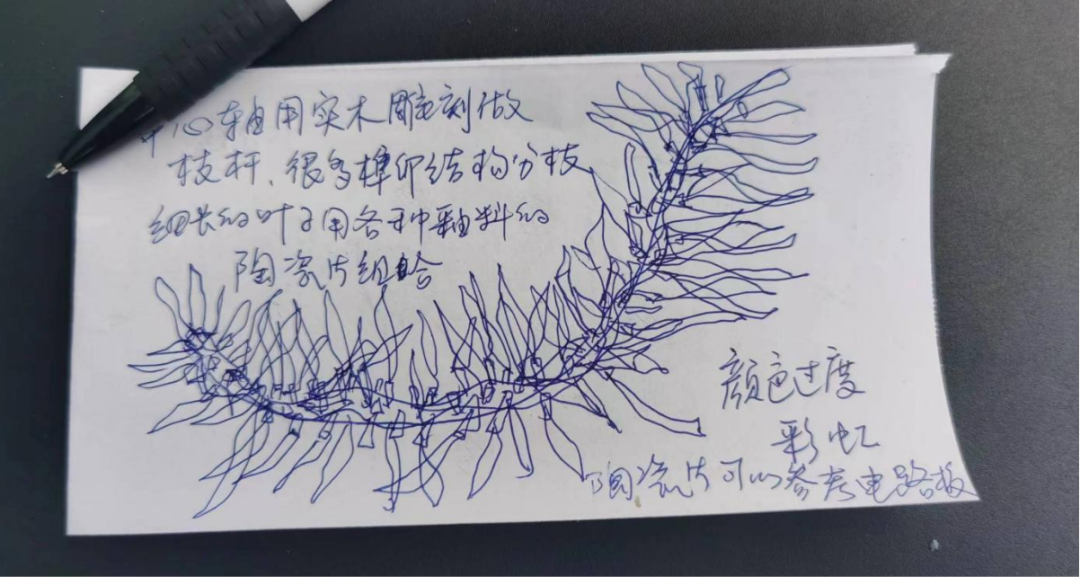 中心轴用实木雕刻做
枝杆、很多榫卯结构分枝
细长的叶子用各种釉料的
陶瓷片组合
颜色过度
彩虹
陶瓷片可以参考电路板